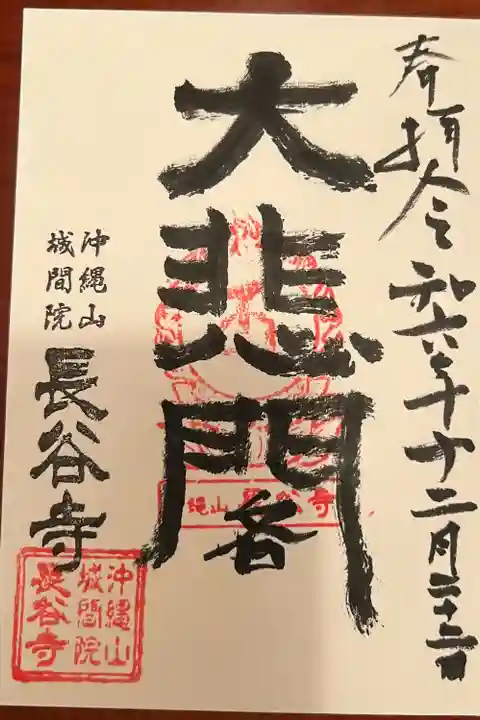 奉拝 令和六年十二月二十二日
大悲閣
沖縄山
城間院
長谷寺
縄山 長谷寺
沖縄山
城間院
長谷寺